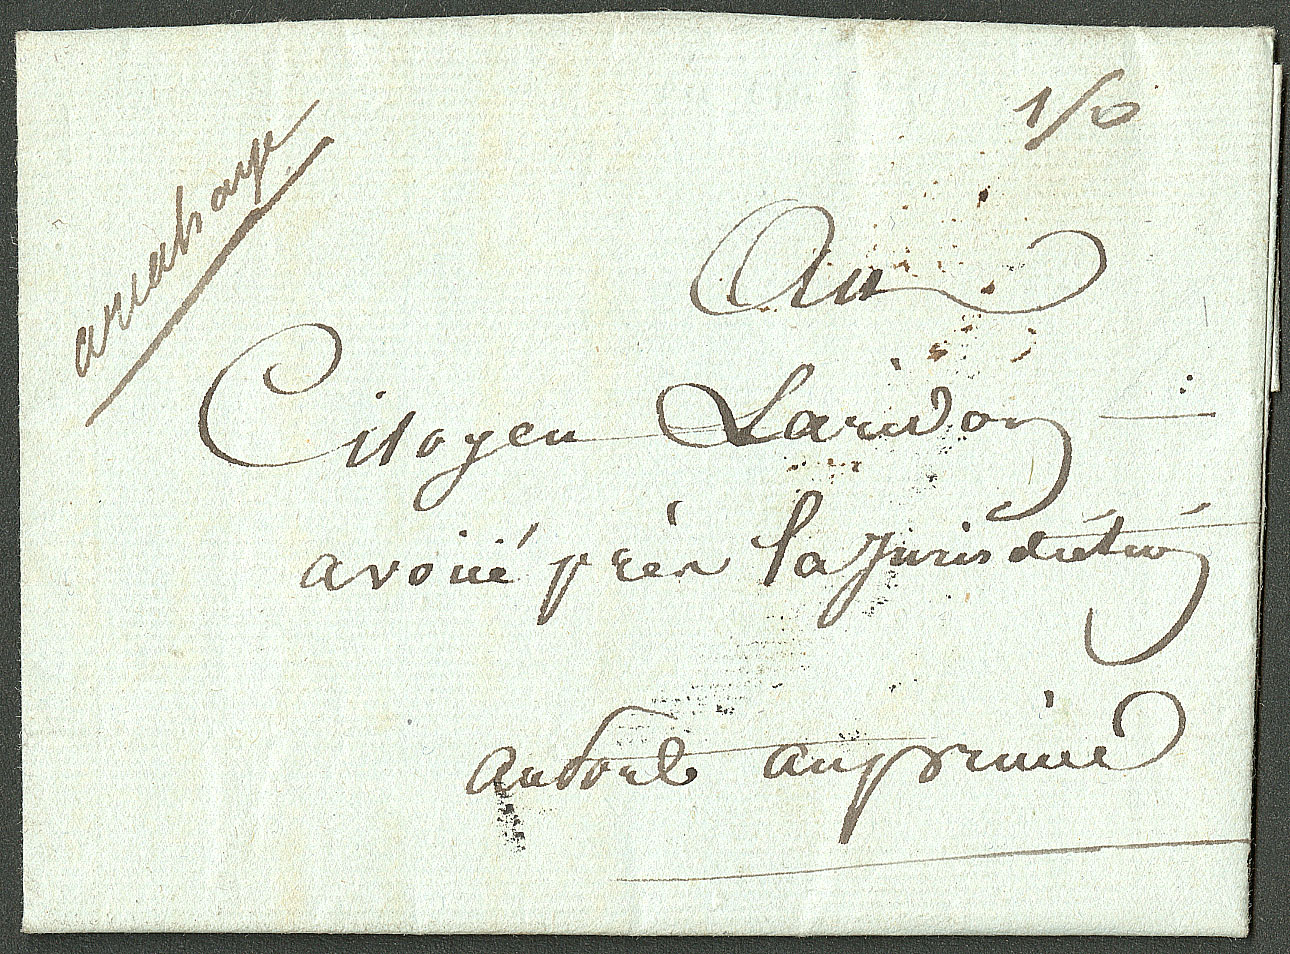 arcahaye
1/0
Au
Citoyen Laridon
avoüé près la Jurisdiction
auport auprince